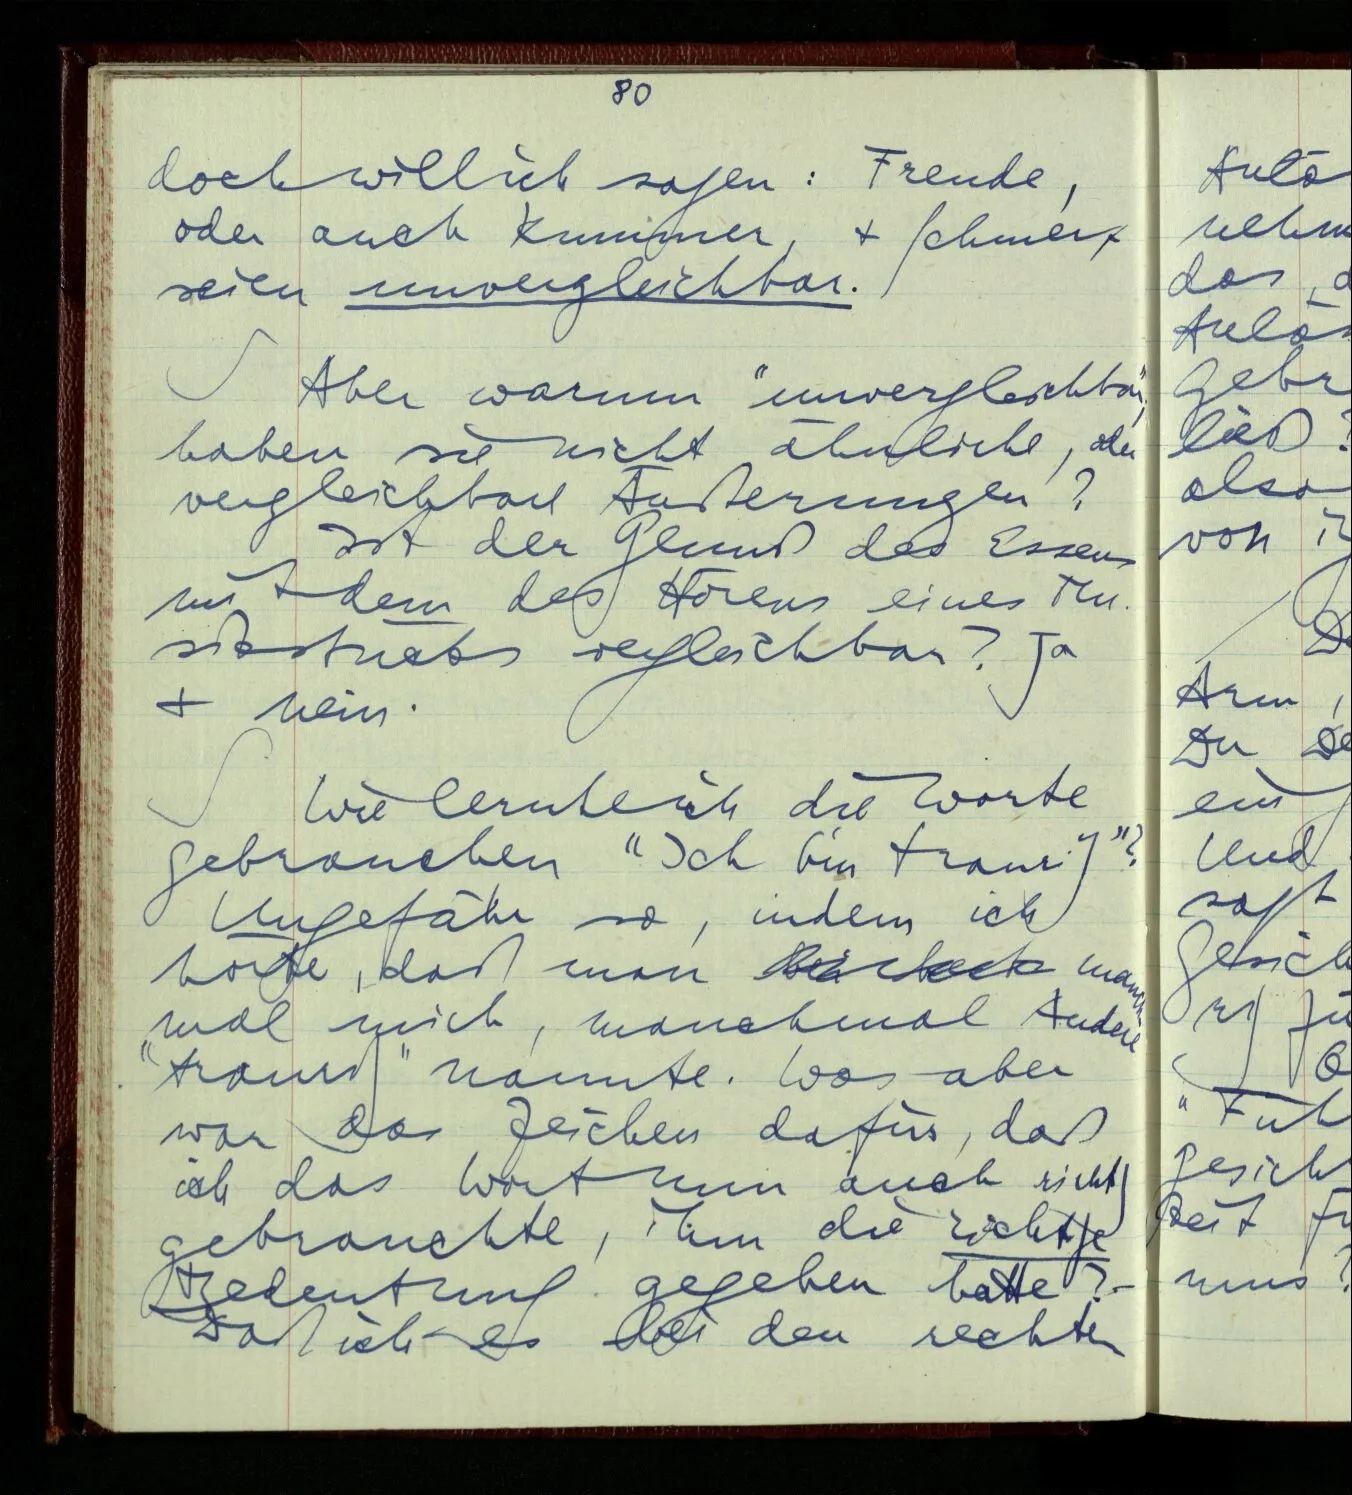 80
doch will ich sagen: Freude,
oder auch Kummer, + Schmerz
seien unvergleichbar.
Aber warum "unvergleichbar",
haben sie nicht ähnliche, oder
vergleichbare Äußerungen?
Ist der Genuß des Essens
mit dem des Hörens eines Mu-
sikstücks vergleichbar? Ja
+ nein.
Wie lernte ich die Worte
gebrauchen "Ich bin traurig"?
Ungefähr so, indem ich
hörte, daß man manch
mal mich, manchmal Andere
"traurig" nannte. Was aber
war das Zeichen dafür, daß
ich das Wort nun auch richtig
gebrauchte, ihm die richtige
Bedeutung gegeben hatte? –
Daß ich es bei den rechten
das, d
Gebr
ließ?
also
von i
Arm,
Du De
ein
Und
sagt
Gesich
rig fü
"Füh
gesich
keit fü
uns?